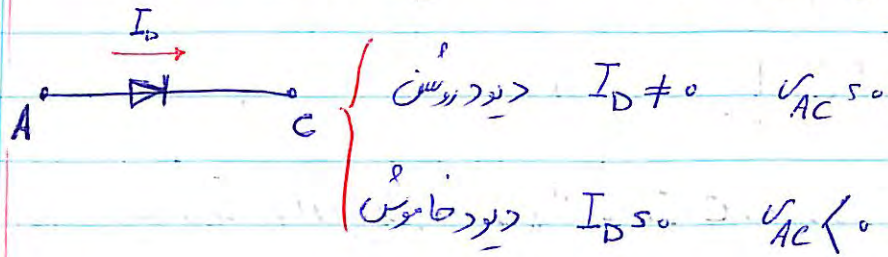 I_D
A C
دیود روشن I_D ≠ 0 V_AC = 0
دیود خاموش I_D = 0 V_AC < 0